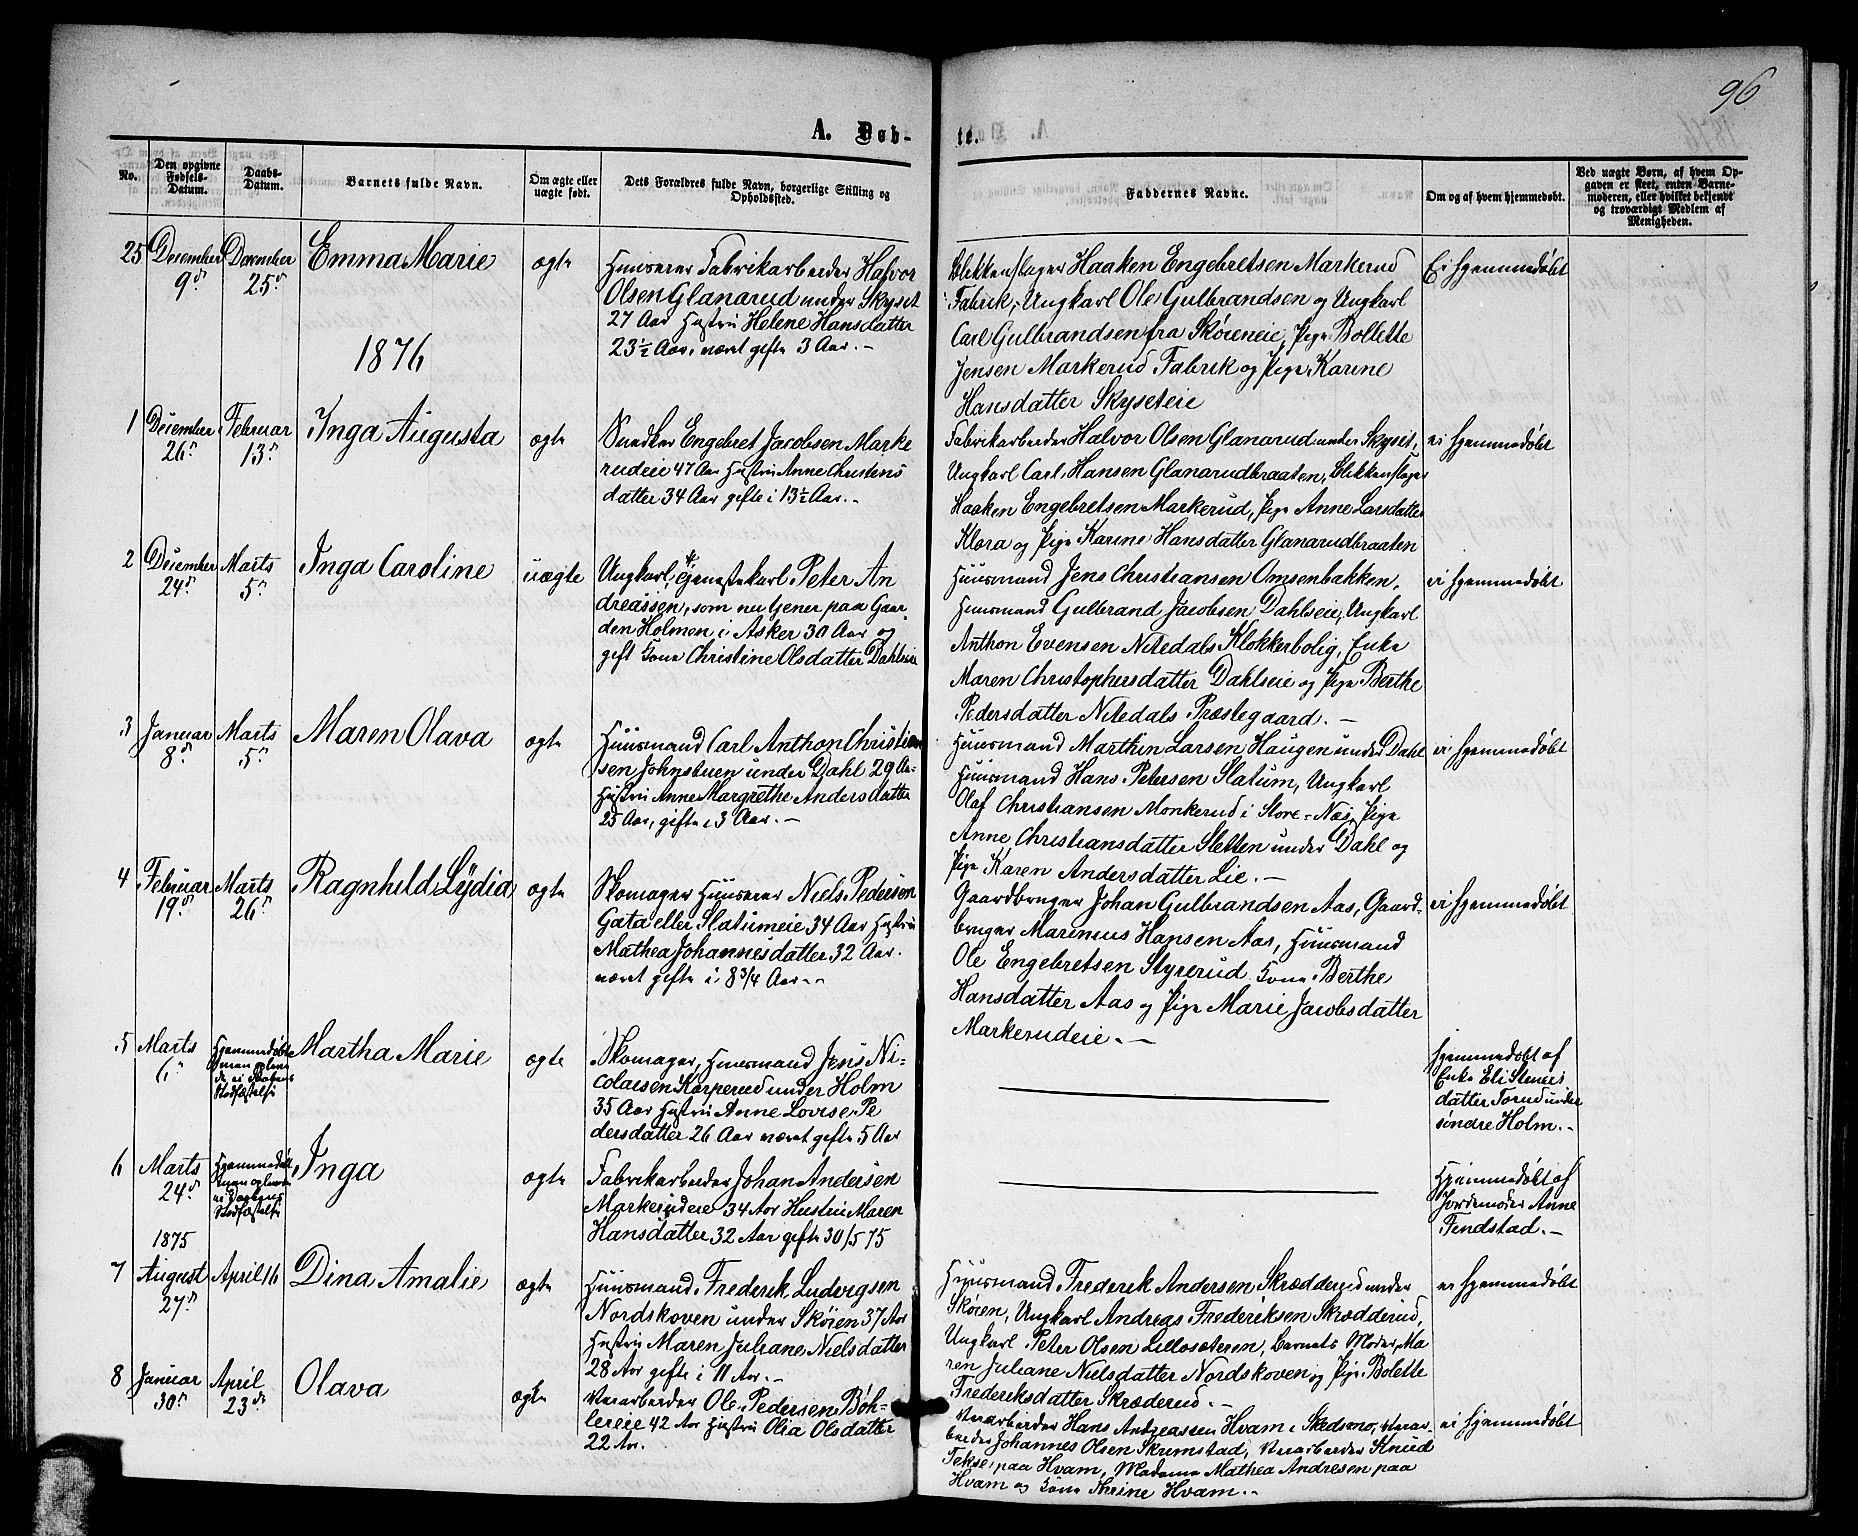 96
A. Døb-
te.
No.
Den opgivne Fødsels-Datum.
Daabs-Datum.
Barnets fulde Navn.
Om ægte eller uægte født.
Dets Forældres fulde Navn, borgerlige Stilling og Opholdssted.
Faddernes Navne.
Om og af hvem hjemmedøbt.
Ved uægte Børn, af hvem Op-
gaven er skeet, enten Barne-
moderen, eller hvilket bekjendt
og troværdigt Medlem af
Menigheden.
25
December
9de
December
25de
Emma Marie
ægte
Huuseier Fabrikarbeider Halvor
Olsen Glanarud under Skyset
27 Aar Hustru Helene Hansdatter
23½ Aar, været gifte 3 Aar.-
Blikkenslager Haaken Engebretsen Markerud
Fabrik, Ungkarl Ole Gulbrandsen og Ungkarl
Carl Gulbrandsen fra Skøieneie, Pige Bollette
Jensen Markerud Fabrik og Pige Karine
Hansdatter Skyseteie
Ei hjemmedøbt
1876
1
December
26de
Februar
13de
Inga Augusta
ægte
Snedker Engebret Jacobsen Marke
rudeie 47 Aar Hustru Anne Christens
datter 34 Aar gifte i 13½ Aar.-
Fabrikarbeider Halvor Olsen Glanarud under Skyset,
Ungkarl Carl Hansen Glanarudbraaten, Blikkenslager
Haaken Engebretsen Markerud, Pige Anne Larsdatter
Klora og Pige Karine Hansdatter Glanarudbraaten
ei hjemmedøbt
2
December
24de
Marts
5de
Inga Caroline
uægte
Ungkarl, Tjenestekarl Peter An
dreassen, som nu tjener paa Gaar
den Holmen i Asker 30 Aar og
gift Kone Christine Olsdatter Dahlseie
Huusmand Jens Christiansen Omsenbakken,
Huusmand Gulbrand Jacobsen Dahlseie, Ungkarl
Anthon Evensen Nitedals Klokkerbolig, Enke
Maren Christophersdatter Dahlseie og Pige Berthe
Pedersdatter Nitedals Præstegaard.-
ei hjemmedøbt
3
Januar
8de
Marts
5de
Maren Olava
ægte
Huusmand Carl Anthon Christian
sen Johnstuen under Dahl 29 Aar
Hustru Anne Margrethe Andersdatter
25 Aar, gifte i 3 Aar.-
Huusmand Marthin Larsen Haugen under Dahl
Huusmand Hans Petersen Slatum, Ungkarl
Olaf Christiansen Monkerud i Store-Næs, Pige
Anne Christiansdatter Sletten under Dahl og
Pige Karen Andersdatter Lie.-
ei hjemmedøbt
4
Februar
19de
Marts
26de
Ragnhild Lydia
ægte
Skomager Huuseier Niels Pedersen
Gata eller Slatumeie 34 Aar Hustru
Mathea Johannesdatter 32 Aar.
været gifte i 8¾ Aar.-
Gaardbruger Johan Gulbrandsen Aas, Gaard-
bruger Marinius Hansen Aas, Huusmand
Ole Engebretsen Styrerud Kone Berthe
Hansdatter Aas og Pige Marie Jacobsdatter
Markerudeie.-
ei hjemmedøbt
5
Marts
6te
Hjemmedøbt
Martha Marie
ægte
Skomager, Huusmand Jens Ni-
colaisen Korperud under Holm
35 Aar Hustru Anne Lovise Pe
dersdatter 26 Aar været gifte 5 Aar
Hjemmedøbt af
Enke Eli Steners
datter Torud under
søndre Holm.-
6
Marts
24de
Hjemmedøbt
Inga
ægte
Fabrikarbeider Johan Andersen
Markerudeie 34 Aar Hustru Maren
Hansdatter 32 Aar gifte 30/5 75
Hjemmedøbt af
Jordemoder Anne
Tendstad.-
1875
7
August
27de
April 16
Dina Amalie
ægte
Huusmand, Frederik Ludvigsen
Nordskoven under Skøien 37 Aar
Hustru Maren Juliane Nielsdatter
28 Aar gifte i 11 Aar.-
Huusmand Frederik Andersen Skrædderud under
Skøien, Ungkarl Andreas Frederiksen Skrædderud,
Ungkarl Peter Olsen Lillosæteren, Barnets Moder, Ma
ren Juliane Nielsdatter Nordskoven og Pige Bolette
Frederiksdatter Skræderud.-
ei hjemmedøbt
8
Januar
30de
April
23de
Olava
ægte
Veiarbeider Ole Pedersen Bøh-
lereie 42 Aar Hustru Olia Olsdatter
22 Aar.
Veiarbeider Hans Andreassen Hvam i Skedsmo, Veiar-
beider Johannes Olsen Skrimstad, Veiarbeider Knud
Tekse, paa Hvam, Madame Mathea Andresen paa
Hvam og Kone Thrine Hvam.-
ei hjemmedøbt